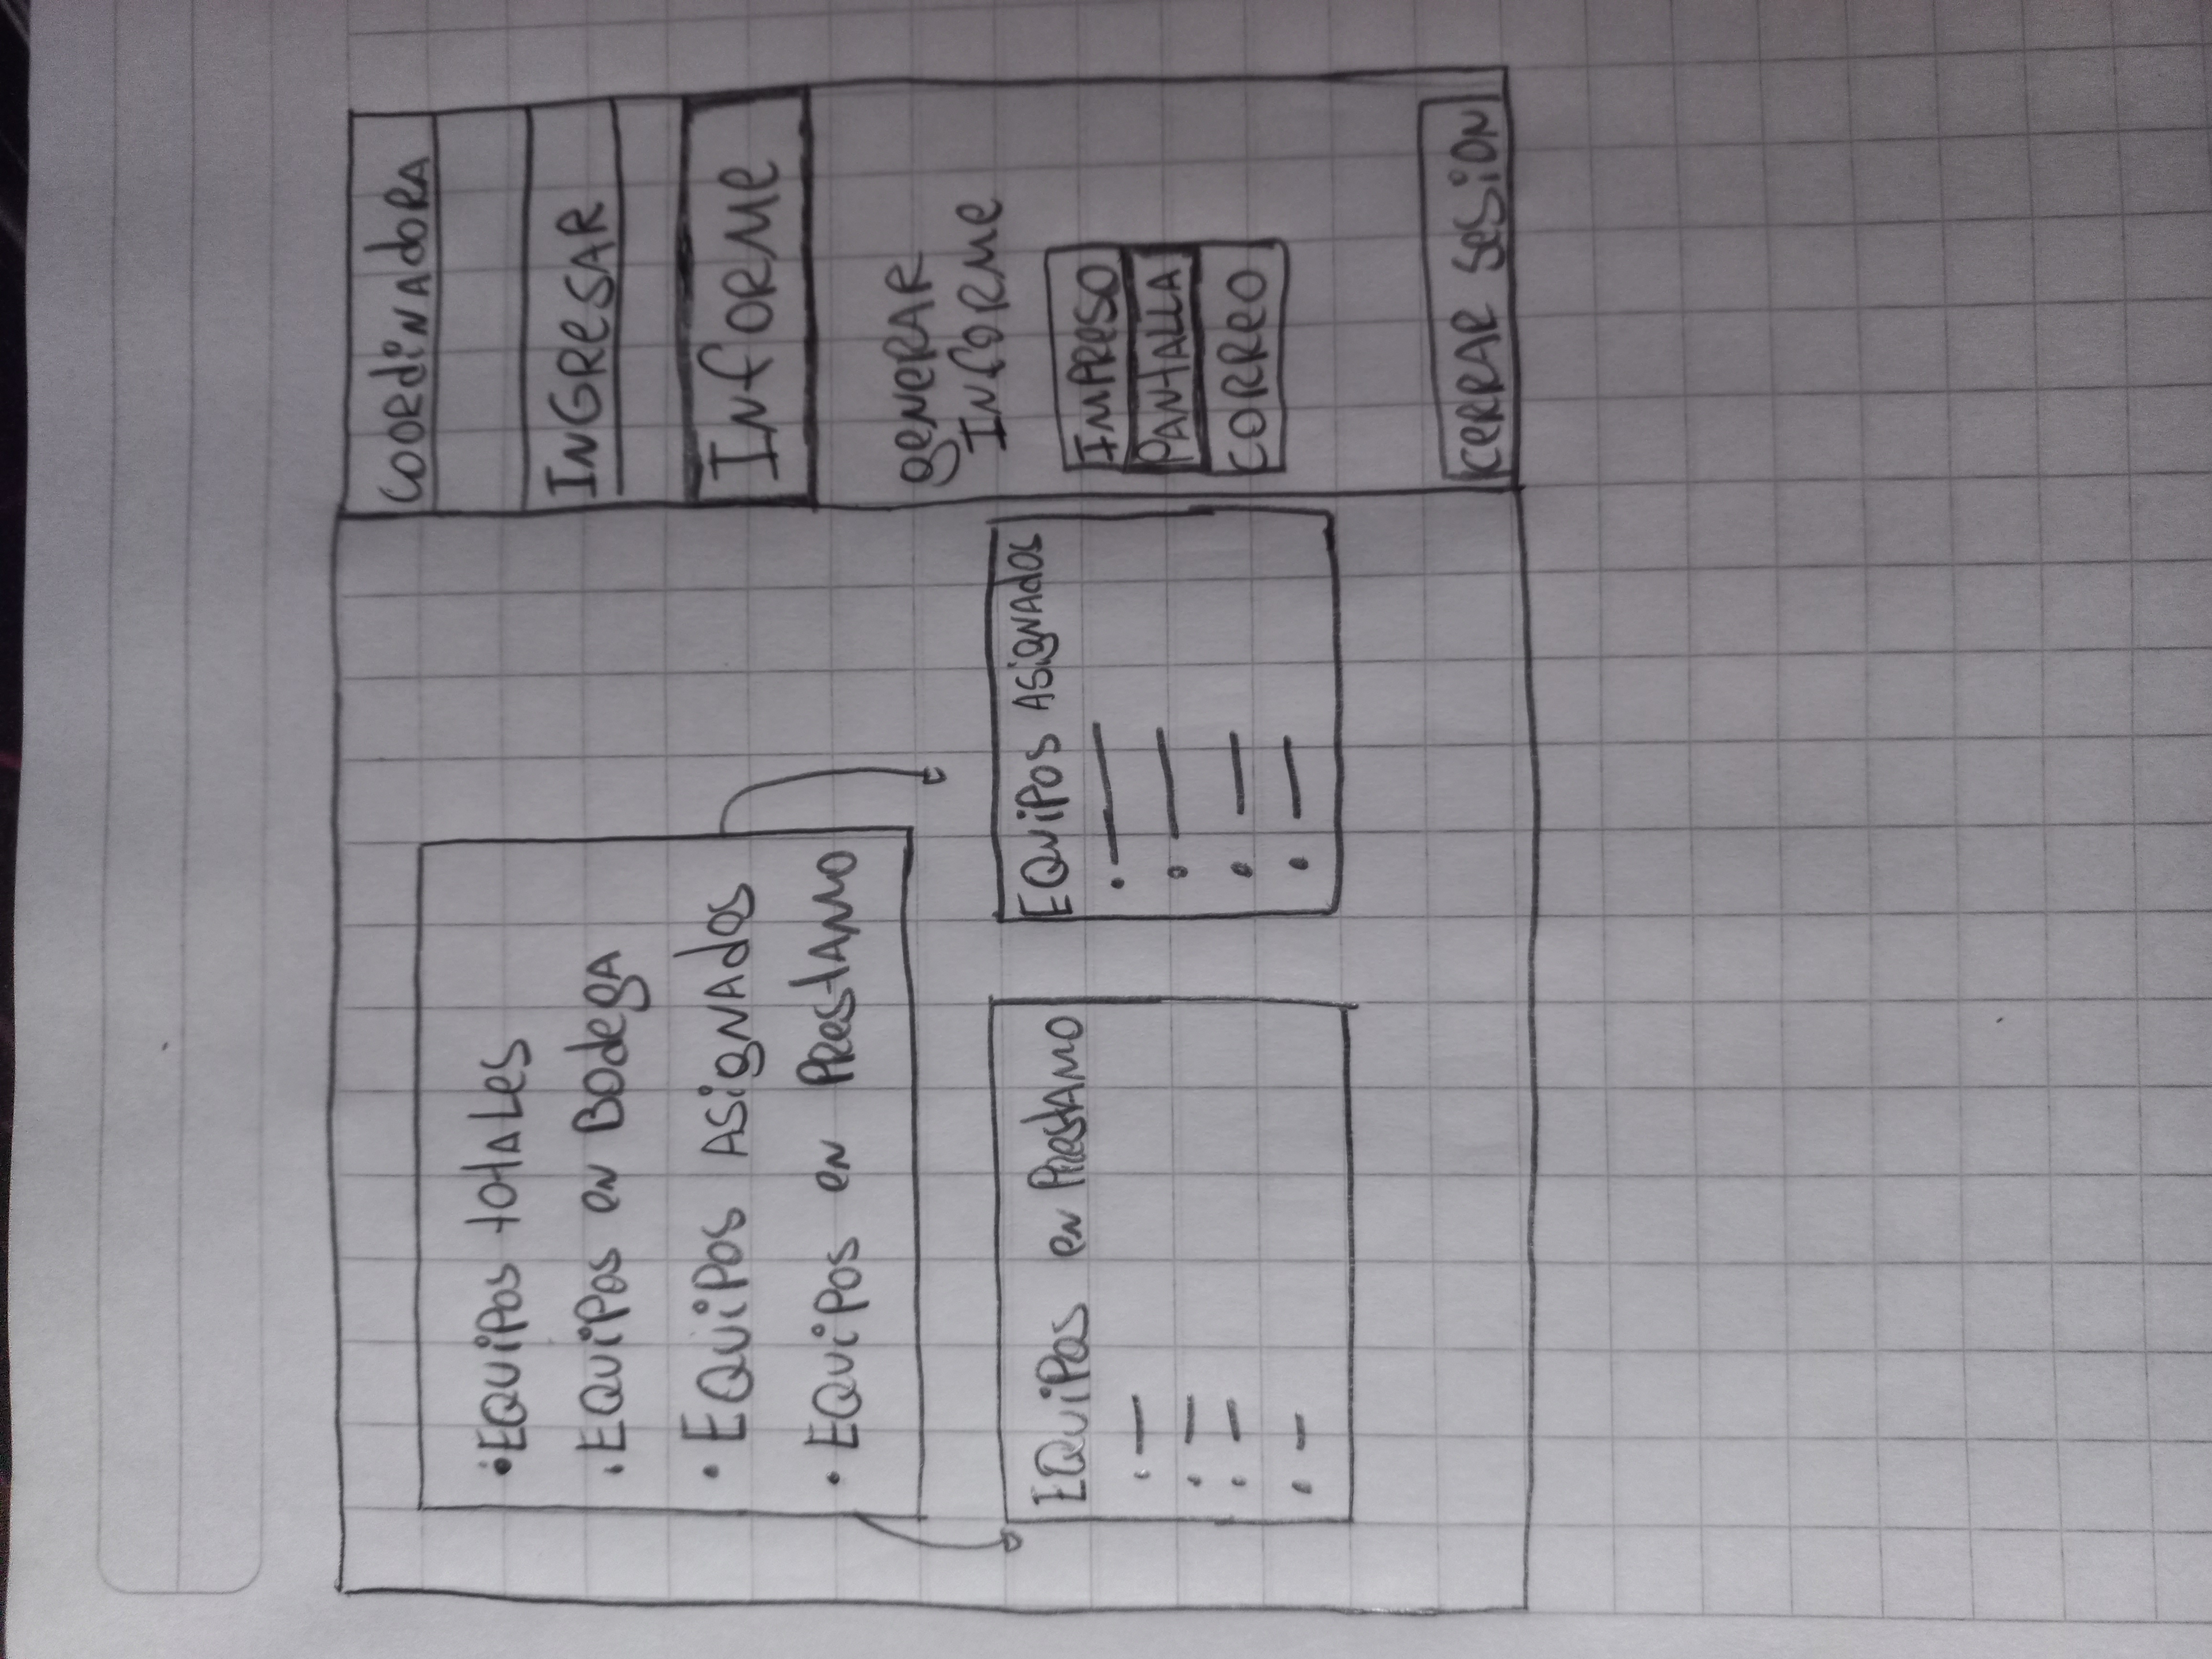 • EQUIPOS TOTALES
• EQUIPOS EN BODEGA
• EQUIPOS ASIGNADOS
• EQUIPOS EN PRESTAMO
EQUIPOS EN PRESTAMO
EQUIPOS ASIGNADOS
COORDINADORA
INGRESAR
INFORME
GENERAR
INFORME
IMPRESO
PANTALLA
CORREO
CERRAR SESION